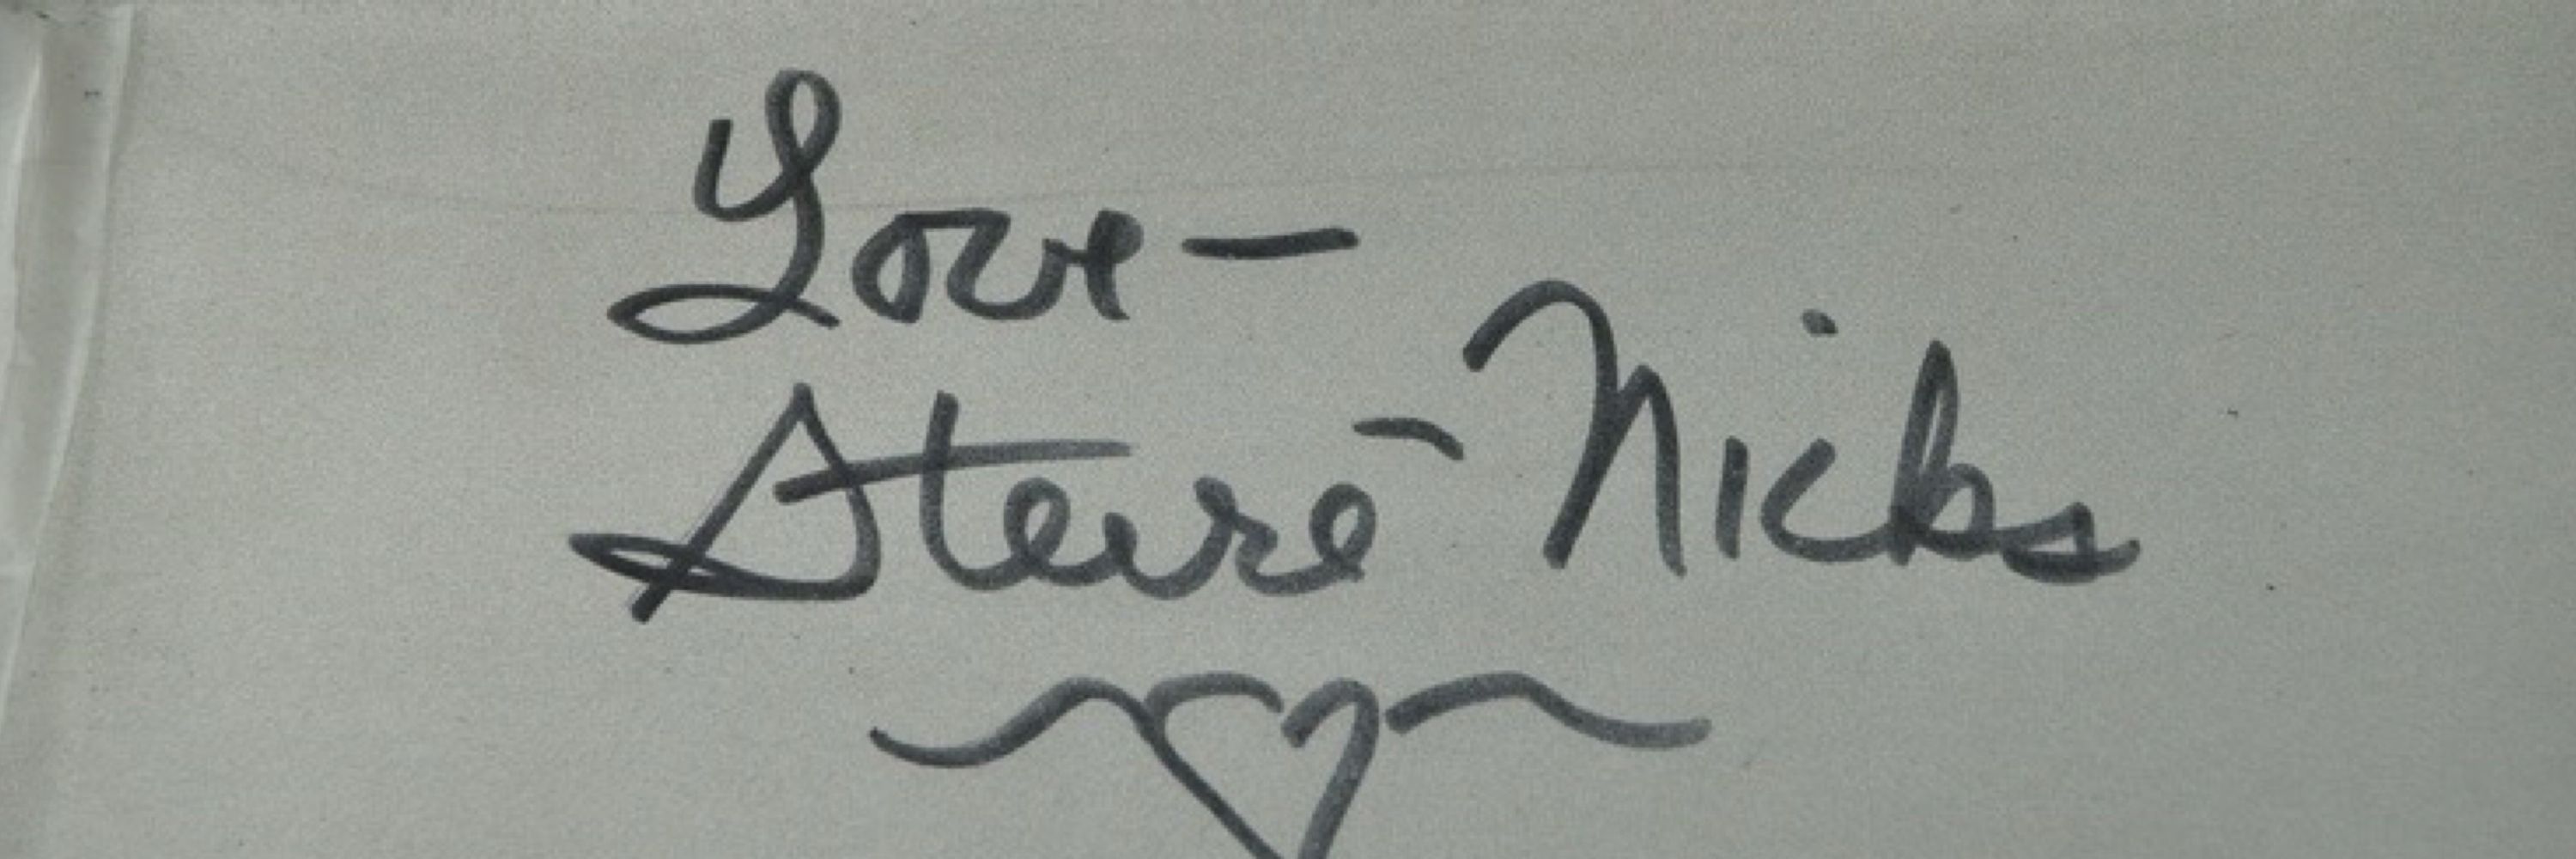 Love-
Stevie Nicks